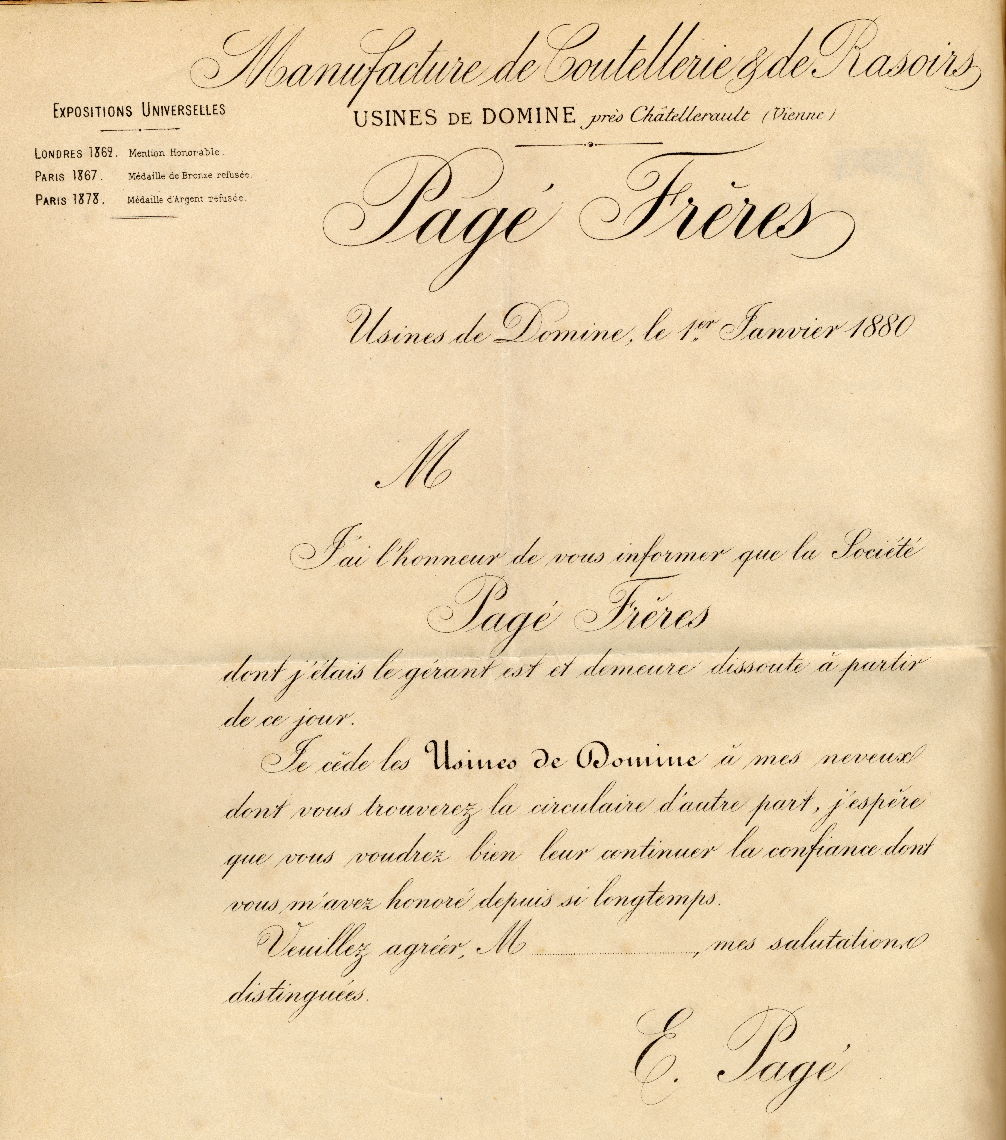 Manufacture de Coutellerie & de Rasoirs
EXPOSITIONS UNIVERSELLES
USINES DE DOMINE près Châtellerault (Vienne)
LONDRES 1862. Mention Honorable.
PARIS 1867. Médaille de Bronze refusée.
PARIS 1878. Médaille d'Argent refusée.
Pagé Frères
Usines de Domine, le 1er Janvier 1880
M
J'ai l'honneur de vous informer que la Société
Pagé Frères
dont j'étais le gérant est et demeure dissoute à partir
de ce jour.
Je cède les Usines de Domine à mes neveux
dont vous trouverez la circulaire d'autre part, j'espère
que vous voudrez bien leur continuer la confiance dont
vous m'avez honoré depuis si longtemps.
Veuillez agréer, M ..............., mes salutations
distinguées.
E. Pagé